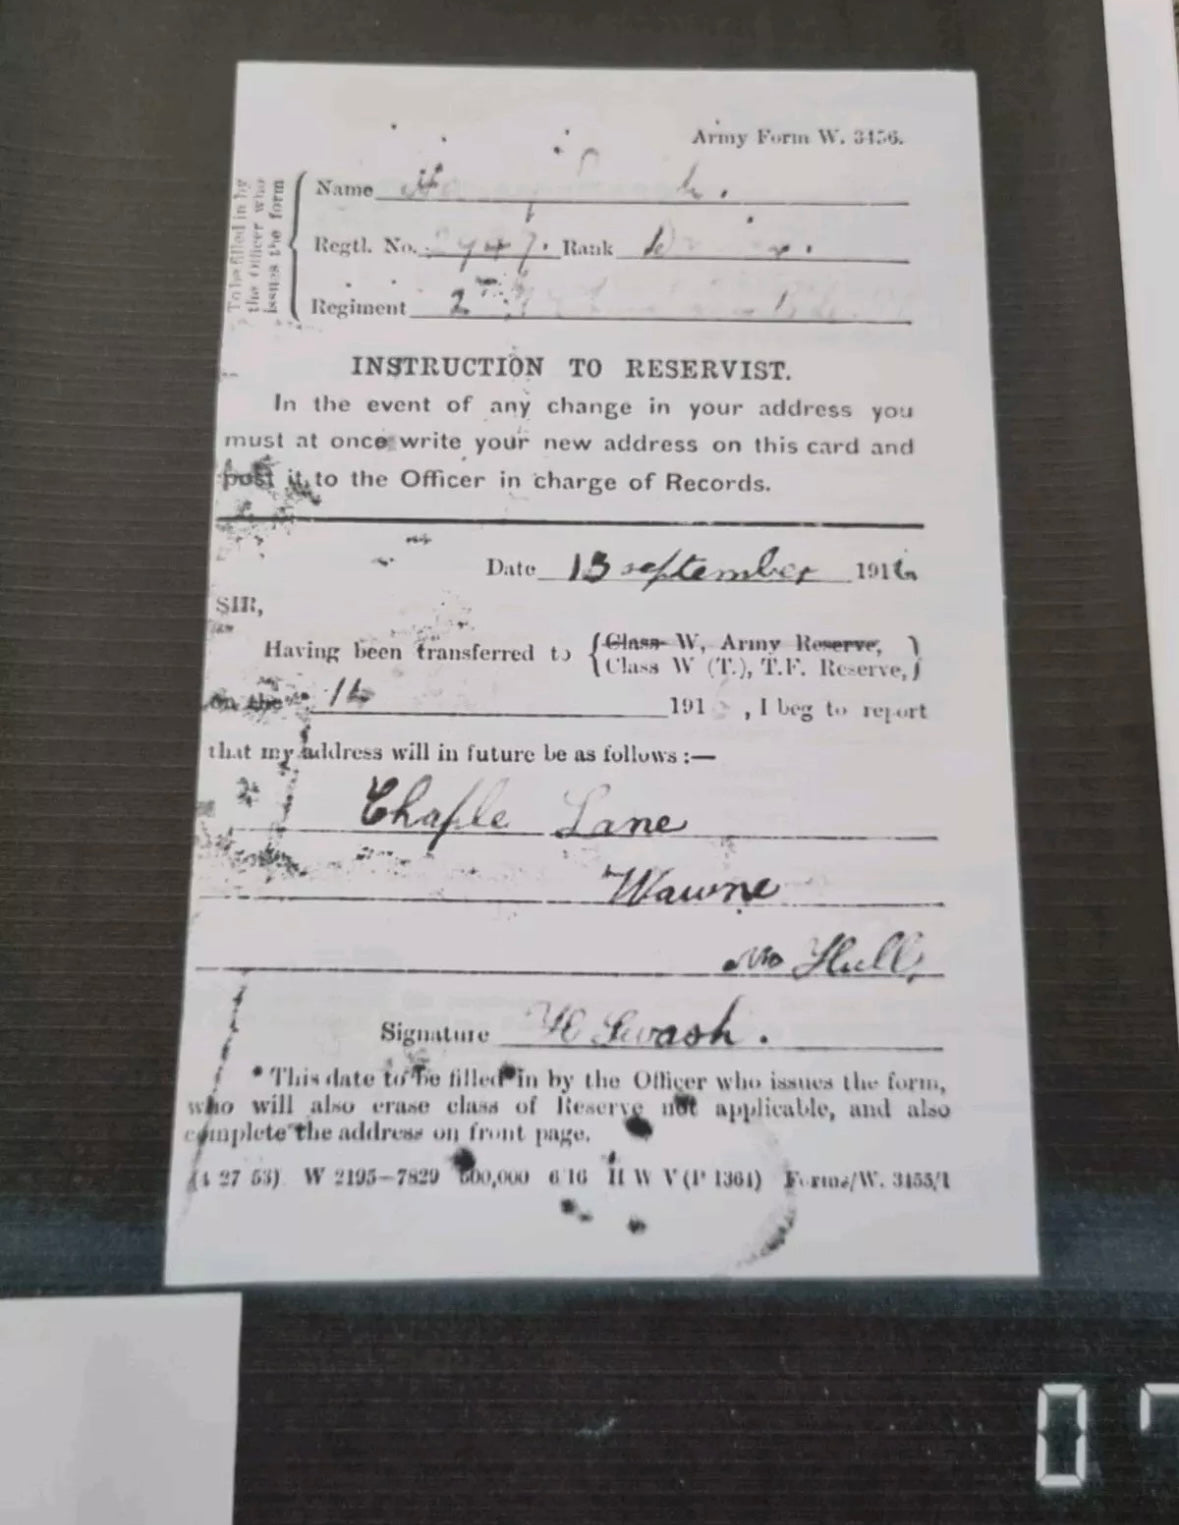 Army Form W. 3456.
To be filled in by
the Officer who
issues the form
Name H
Regtl. No. Rank
Regiment 2
INSTRUCTION TO RESERVIST.
In the event of any change in your address you
must at once write your new address on this card and
post it to the Officer in charge of Records.
Date 13 september 1916
SIR,
Having been transferred to Class W, Army Reserve,
Class W (T.), T.F. Reserve,
on the 191 , I beg to report
that my address will in future be as follows :—
Chaple Lane
Wawne
Hull
Signature H Swash.
* This date to be filled in by the Officer who issues the form,
who will also erase class of Reserve not applicable, and also
complete the address on front page.
(4 27 53) W 2195—7829 500,000 6/16 H W V (P 1364) Forms/W. 3455/1
07